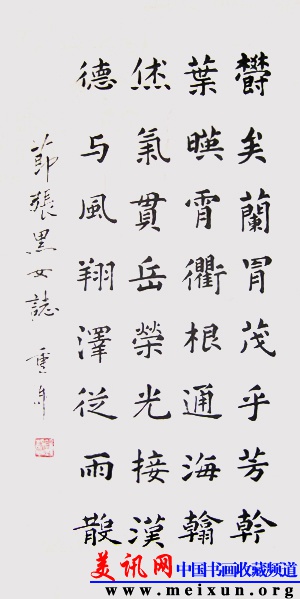 欝矣蘭胄茂乎芳幹
葉暎霄衢根通海翰
烋氣貫岳榮光接漢
德与風翔澤從雨散
節張黑女誌
美讯网 中国书画收藏频道
www.meixun.org